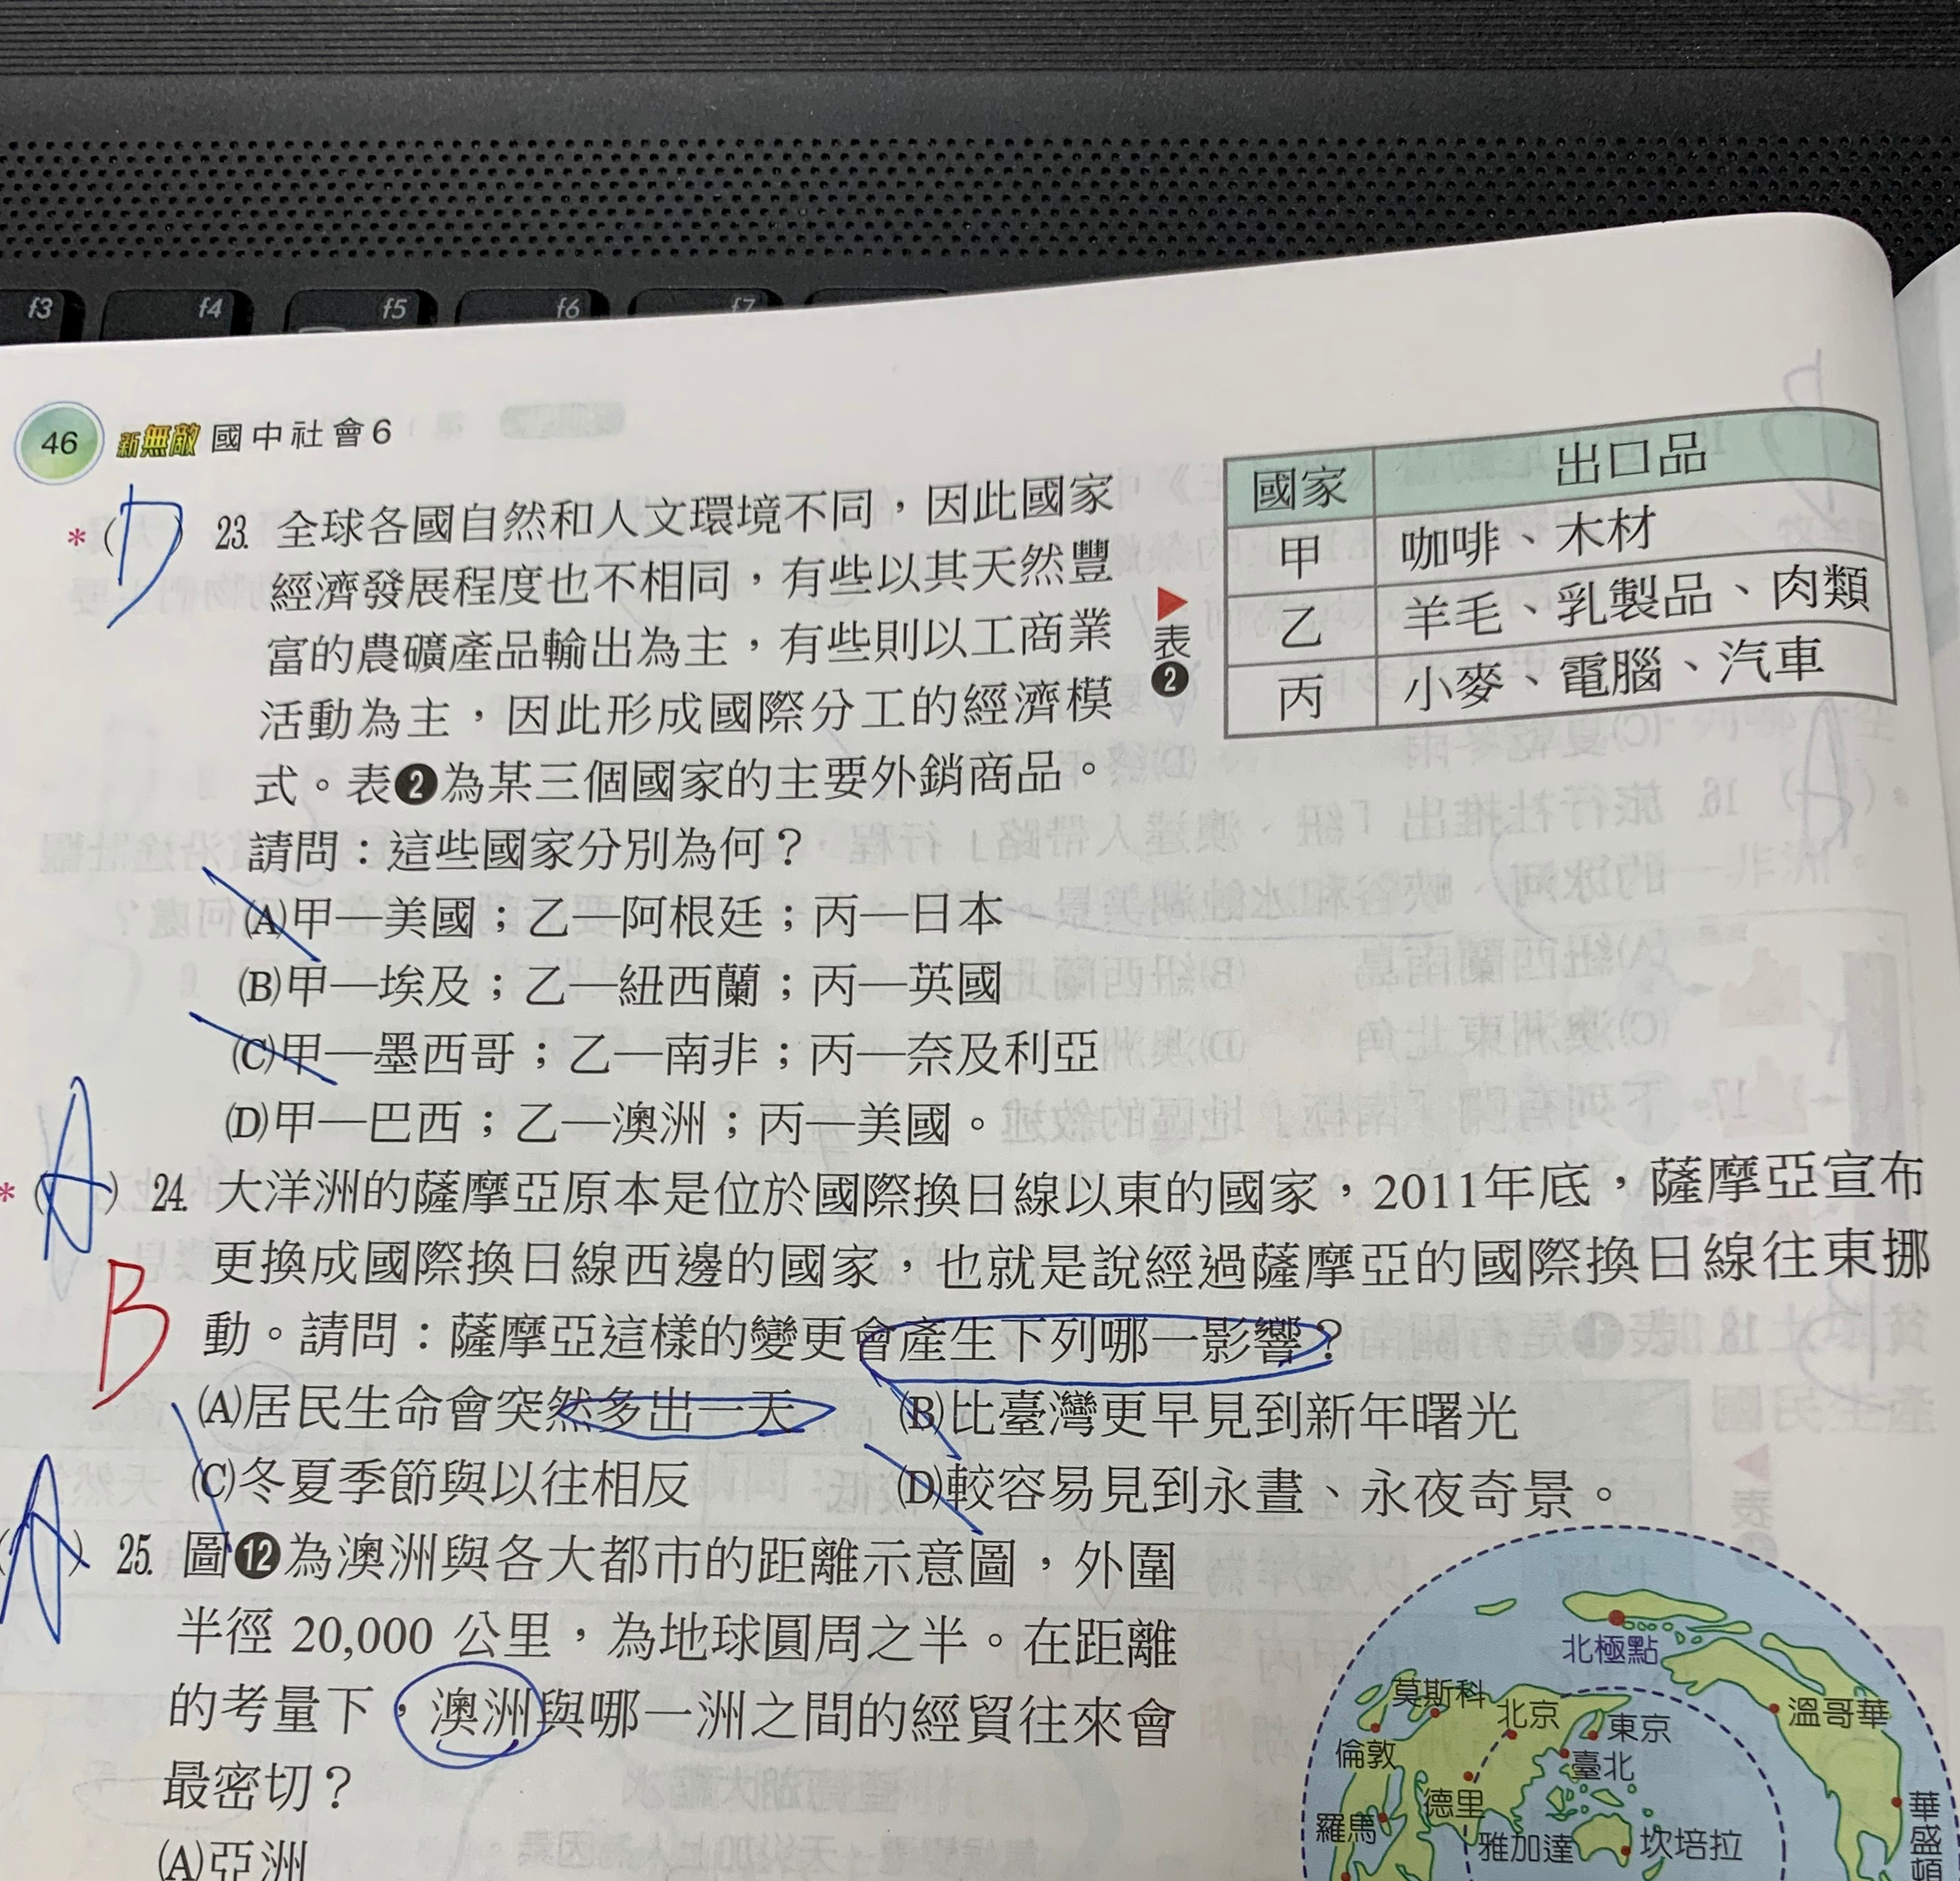 f3 f4 f5 f6 f7
46 新無敵 國中社會6
*(D) 23. 全球各國自然和人文環境不同，因此國家
經濟發展程度也不相同，有些以其天然豐
富的農礦產品輸出為主，有些則以工商業
活動為主，因此形成國際分工的經濟模
式。表❷為某三個國家的主要外銷商品。
請問：這些國家分別為何？
▶表❷
國家 出口品
甲 咖啡、木材
乙 羊毛、乳製品、肉類
丙 小麥、電腦、汽車
(A)甲—美國；乙—阿根廷；丙—日本
(B)甲—埃及；乙—紐西蘭；丙—英國
(C)甲—墨西哥；乙—南非；丙—奈及利亞
(D)甲—巴西；乙—澳洲；丙—美國。
*(A) 24. 大洋洲的薩摩亞原本是位於國際換日線以東的國家，2011年底，薩摩亞宣布
更換成國際換日線西邊的國家，也就是說經過薩摩亞的國際換日線往東挪
B
動。請問：薩摩亞這樣的變更會產生下列哪一影響？
(A)居民生命會突然多出一天 (B)比臺灣更早見到新年曙光
(C)冬夏季節與以往相反 (D)較容易見到永晝、永夜奇景。
(A) 25. 圖⓬為澳洲與各大都市的距離示意圖，外圍
半徑 20,000 公里，為地球圓周之半。在距離
的考量下，澳洲與哪一洲之間的經貿往來會
最密切？
(A)亞洲
北極點
莫斯科
北京
東京
溫哥華
倫敦
臺北
德里
羅馬
雅加達
坎培拉
華盛頓